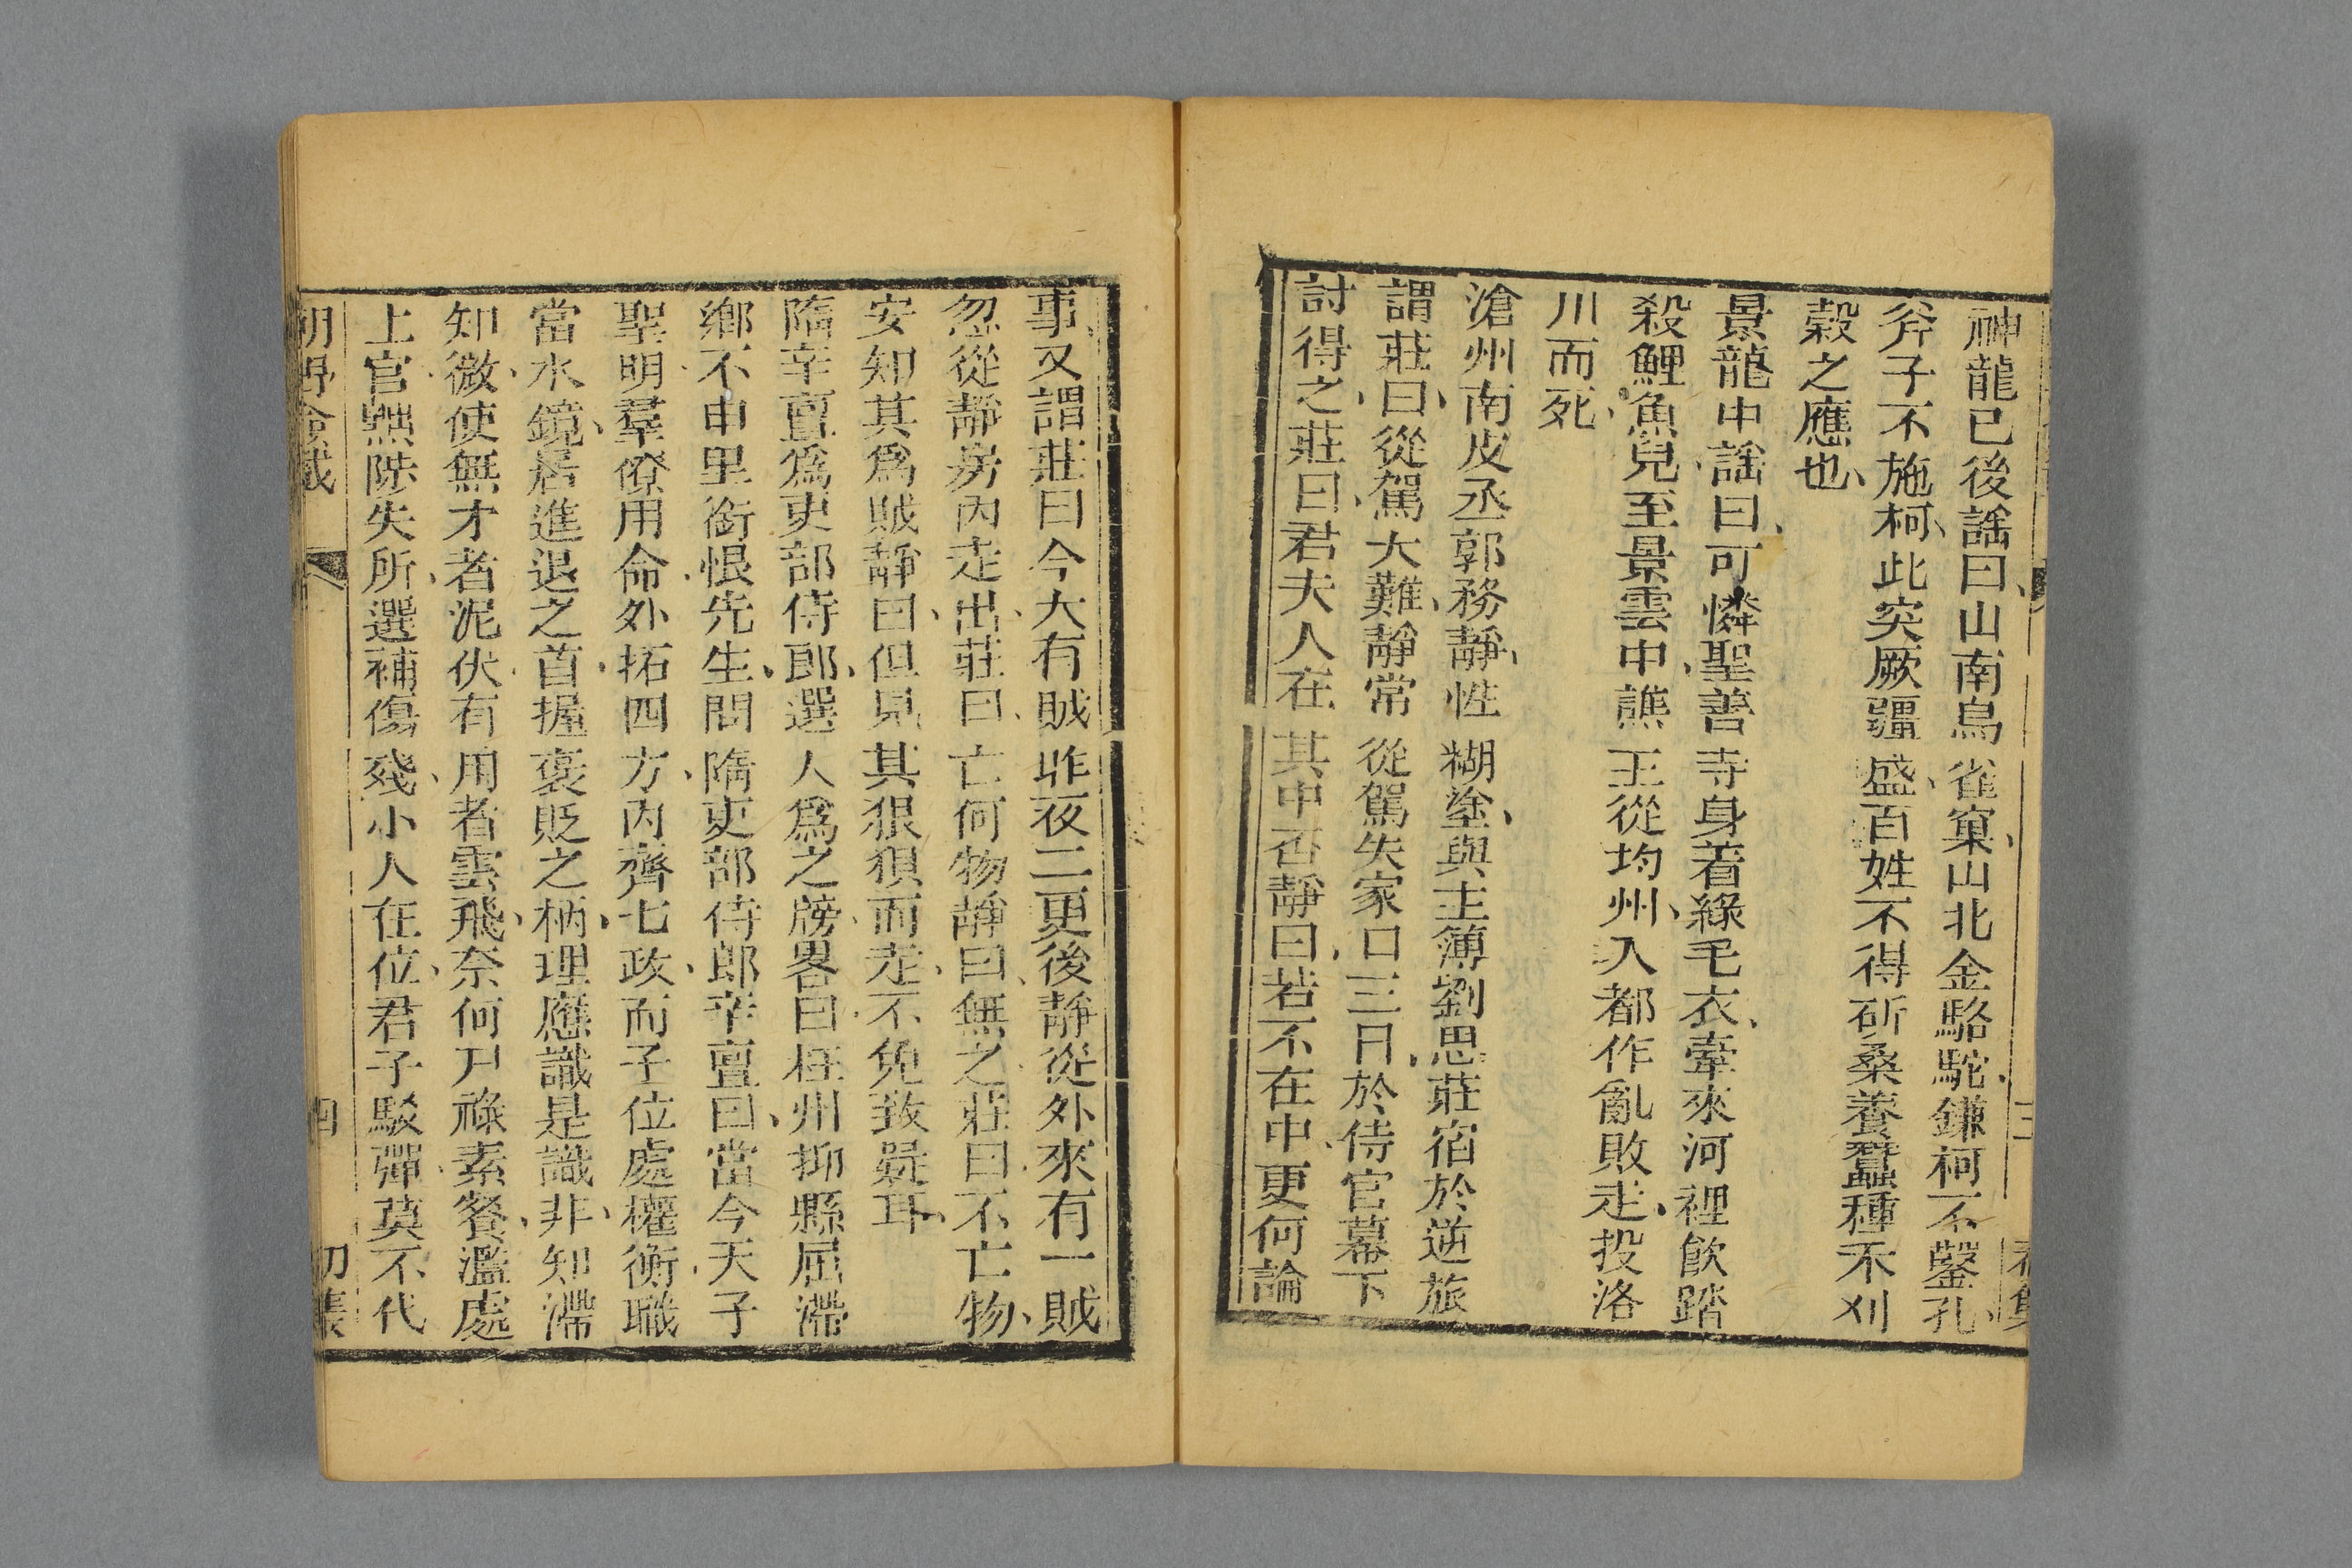 神龍已後謠曰、山南烏雀窠、山北金駱駝、鎌柯不鑿孔、
斧子不施柯、此突厥疆盛、百姓不得斫桑養蠶種禾刈
穀之應也、
景龍中謠曰、可憐聖善寺身着綠毛衣、牽來河裡飲踏
殺鯉魚兒、至景雲中、譙王從均州、入都作亂敗走、投洛
川而死、
滄州南皮丞郭務靜、性糊塗、與主簿劉思莊宿於逆旅
謂莊曰、從駕大難、靜常從駕失家口三日、於侍官幕下
討得之、莊曰、君夫人在其中否、靜曰、若不在中、更何論
事、又謂莊曰今大有賊昨夜二更後靜從外來有一賊
忽從靜房內走出、莊曰、亡何物、靜曰、無之、莊曰、不亡物、
安知其爲賊靜曰、但見其狼狽而走、不免致疑耳、
隋辛亶爲吏部侍郎、選人爲之牓、畧曰、枉州抑縣屈滯
鄉不申里銜恨先生、問隋吏部侍郎辛亶曰、當今天子
聖明、羣僚用命、外拓四方、內齊七政、而子位處權衡、職
當水鏡、居進退之首、握褒貶之柄、理應識是識非、知滯
知微、使無才者泥伏、有用者雲飛、奈何尸祿素餐、濫處
上官、黜陟失所、選補傷殘、小人在位、君子駁彈、莫不代
朝野僉載
四
初集